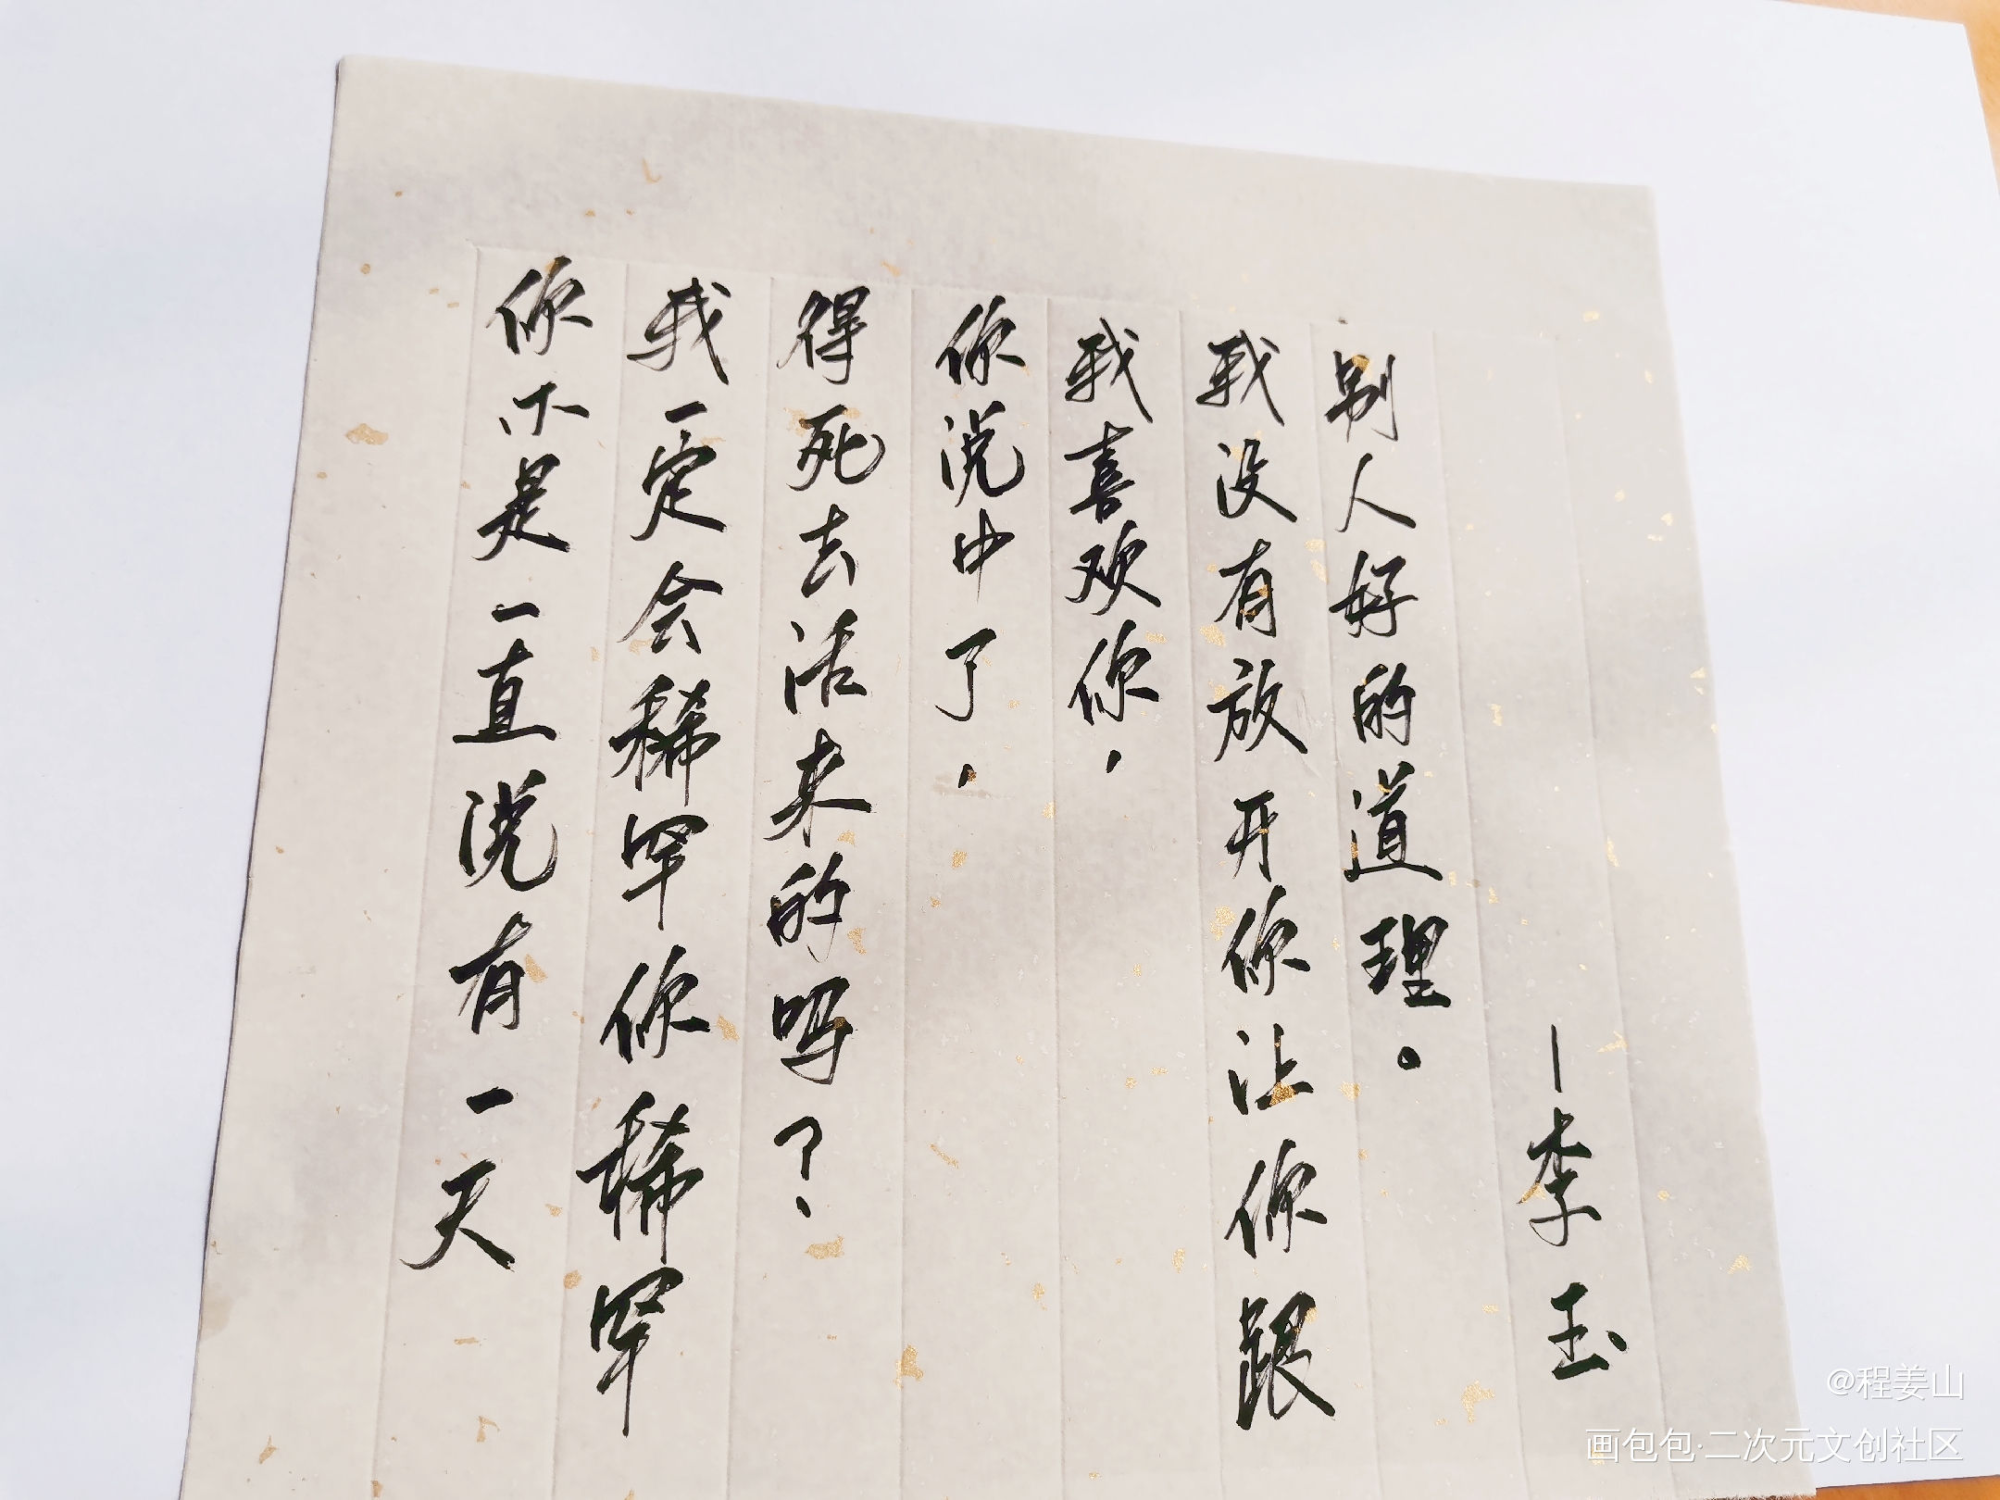 你不是一直说有一天
我一定会稀罕你稀罕
得死去活来的吗？
你说中了，
我喜欢你，
我没有放开你让你跟
别人好的道理。
—李玉
@程姜山
画包包·二次元文创社区